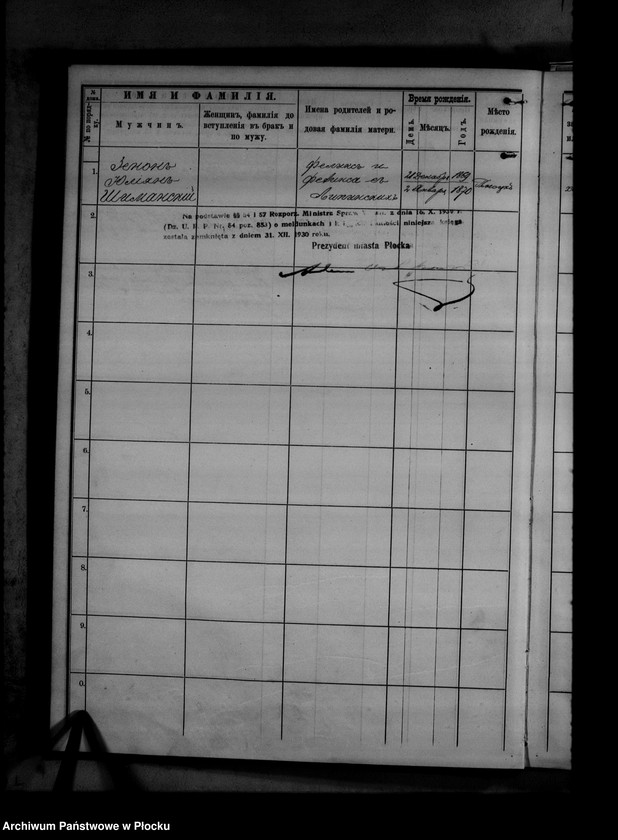 ИМЯ И ФАМИЛІЯ.
Мужчинъ.
Женщинъ, фамилія до
вступленія въ бракъ и
по мужу.
Имена родителей и ро-
довая фамилія матери.
Время рожденія.
День.
Мѣсяцъ.
Годъ.
Мѣсто
рожденія.
№ по порядку.
1.
Зенонъ
Юліянъ
Шиманскій
Феликса и
Фелиkса
21 Декабря 1869
2 Января 1870
2.
Na podstawie §§ 54 i 57 Rozporz. Ministra Spraw z dnia 16. X. 1930 r.
(Dz. U. R. P. Nr. 84 poz. 653) o meldunkach i niniejsza księga
została zamknięta z dniem 31. XII. 1930 roku.
Prezydent miasta Płocka
3.
4.
5.
6.
7.
8.
9.
0.
Archiwum Państwowe w Płocku